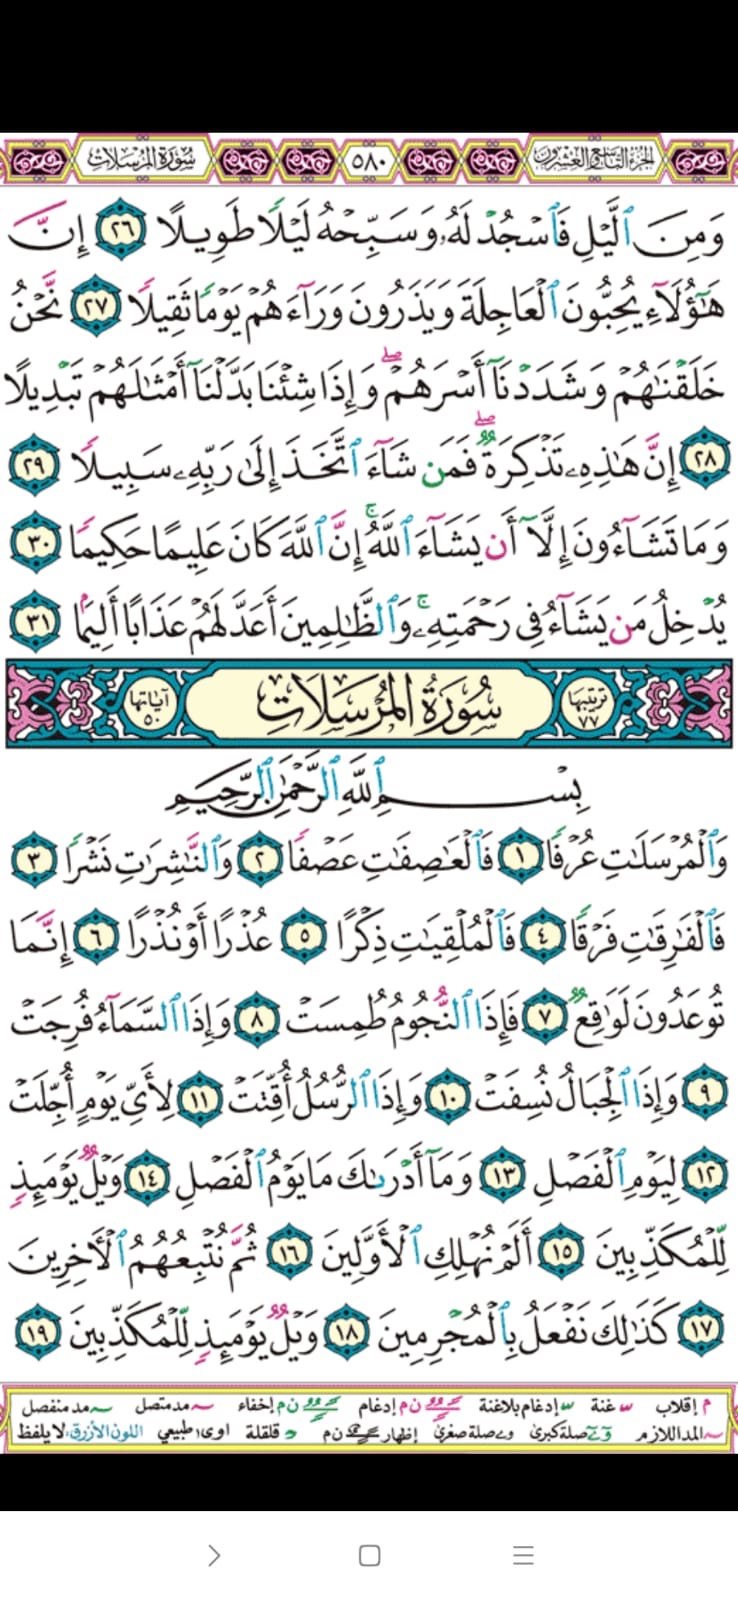 الجزء التاسع والعشرون ٥٨٠ سُورَةُ المُرْسَلَات
وَمِنَ ٱلَّيْلِ فَٱسْجُدْ لَهُۥ وَسَبِّحْهُ لَيْلًا طَوِيلًا ٢٦ إِنَّ
هَٰٓؤُلَآءِ يُحِبُّونَ ٱلْعَاجِلَةَ وَيَذَرُونَ وَرَآءَهُمْ يَوْمًا ثَقِيلًا ٢٧ نَّحْنُ
خَلَقْنَٰهُمْ وَشَدَدْنَآ أَسْرَهُمْ ۖ وَإِذَا شِئْنَا بَدَّلْنَآ أَمْثَٰلَهُمْ تَبْدِيلًا
٢٨ إِنَّ هَٰذِهِۦ تَذْكِرَةٌ ۖ فَمَن شَآءَ ٱتَّخَذَ إِلَىٰ رَبِّهِۦ سَبِيلًا ٢٩
وَمَا تَشَآءُونَ إِلَّآ أَن يَشَآءَ ٱللَّهُ ۚ إِنَّ ٱللَّهَ كَانَ عَلِيمًا حَكِيمًا ٣٠
يُدْخِلُ مَن يَشَآءُ فِى رَحْمَتِهِۦ ۚ وَٱلظَّٰلِمِينَ أَعَدَّ لَهُمْ عَذَابًا أَلِيمًۢا ٣١
ترتيبها ٧٧ سُورَةُ المُرْسَلَاتِ آياتها ٥٠
بِسْمِ ٱللَّهِ ٱلرَّحْمَٰنِ ٱلرَّحِيمِ
وَٱلْمُرْسَلَٰتِ عُرْفًا ١ فَٱلْعَٰصِفَٰتِ عَصْفًا ٢ وَٱلنَّٰشِرَٰتِ نَشْرًا ٣
فَٱلْفَٰرِقَٰتِ فَرْقًا ٤ فَٱلْمُلْقِيَٰتِ ذِكْرًا ٥ عُذْرًا أَوْ نُذْرًا ٦ إِنَّمَا
تُوعَدُونَ لَوَٰقِعٌ ٧ فَإِذَا ٱلنُّجُومُ طُمِسَتْ ٨ وَإِذَا ٱلسَّمَآءُ فُرِجَتْ
٩ وَإِذَا ٱلْجِبَالُ نُسِفَتْ ١٠ وَإِذَا ٱلرُّسُلُ أُقِّتَتْ ١١ لِأَىِّ يَوْمٍ أُجِّلَتْ
١٢ لِيَوْمِ ٱلْفَصْلِ ١٣ وَمَآ أَدْرَىٰكَ مَا يَوْمُ ٱلْفَصْلِ ١٤ وَيْلٌ يَوْمَئِذٍ
لِّلْمُكَذِّبِينَ ١٥ أَلَمْ نُهْلِكِ ٱلْأَوَّلِينَ ١٦ ثُمَّ نُتْبِعُهُمُ ٱلْءَاخِرِينَ
١٧ كَذَٰلِكَ نَفْعَلُ بِٱلْمُجْرِمِينَ ١٨ وَيْلٌ يَوْمَئِذٍ لِّلْمُكَذِّبِينَ ١٩
م إقلاب غنة إدغام بلاغنة ن م إدغام ن م إخفاء مد متصل مد منفصل
المد اللازم صلة كبرى و ے صلة صغرى إظهار ن م قلقلة اوى طبيعي اللون الأزرق: لا يلفظ